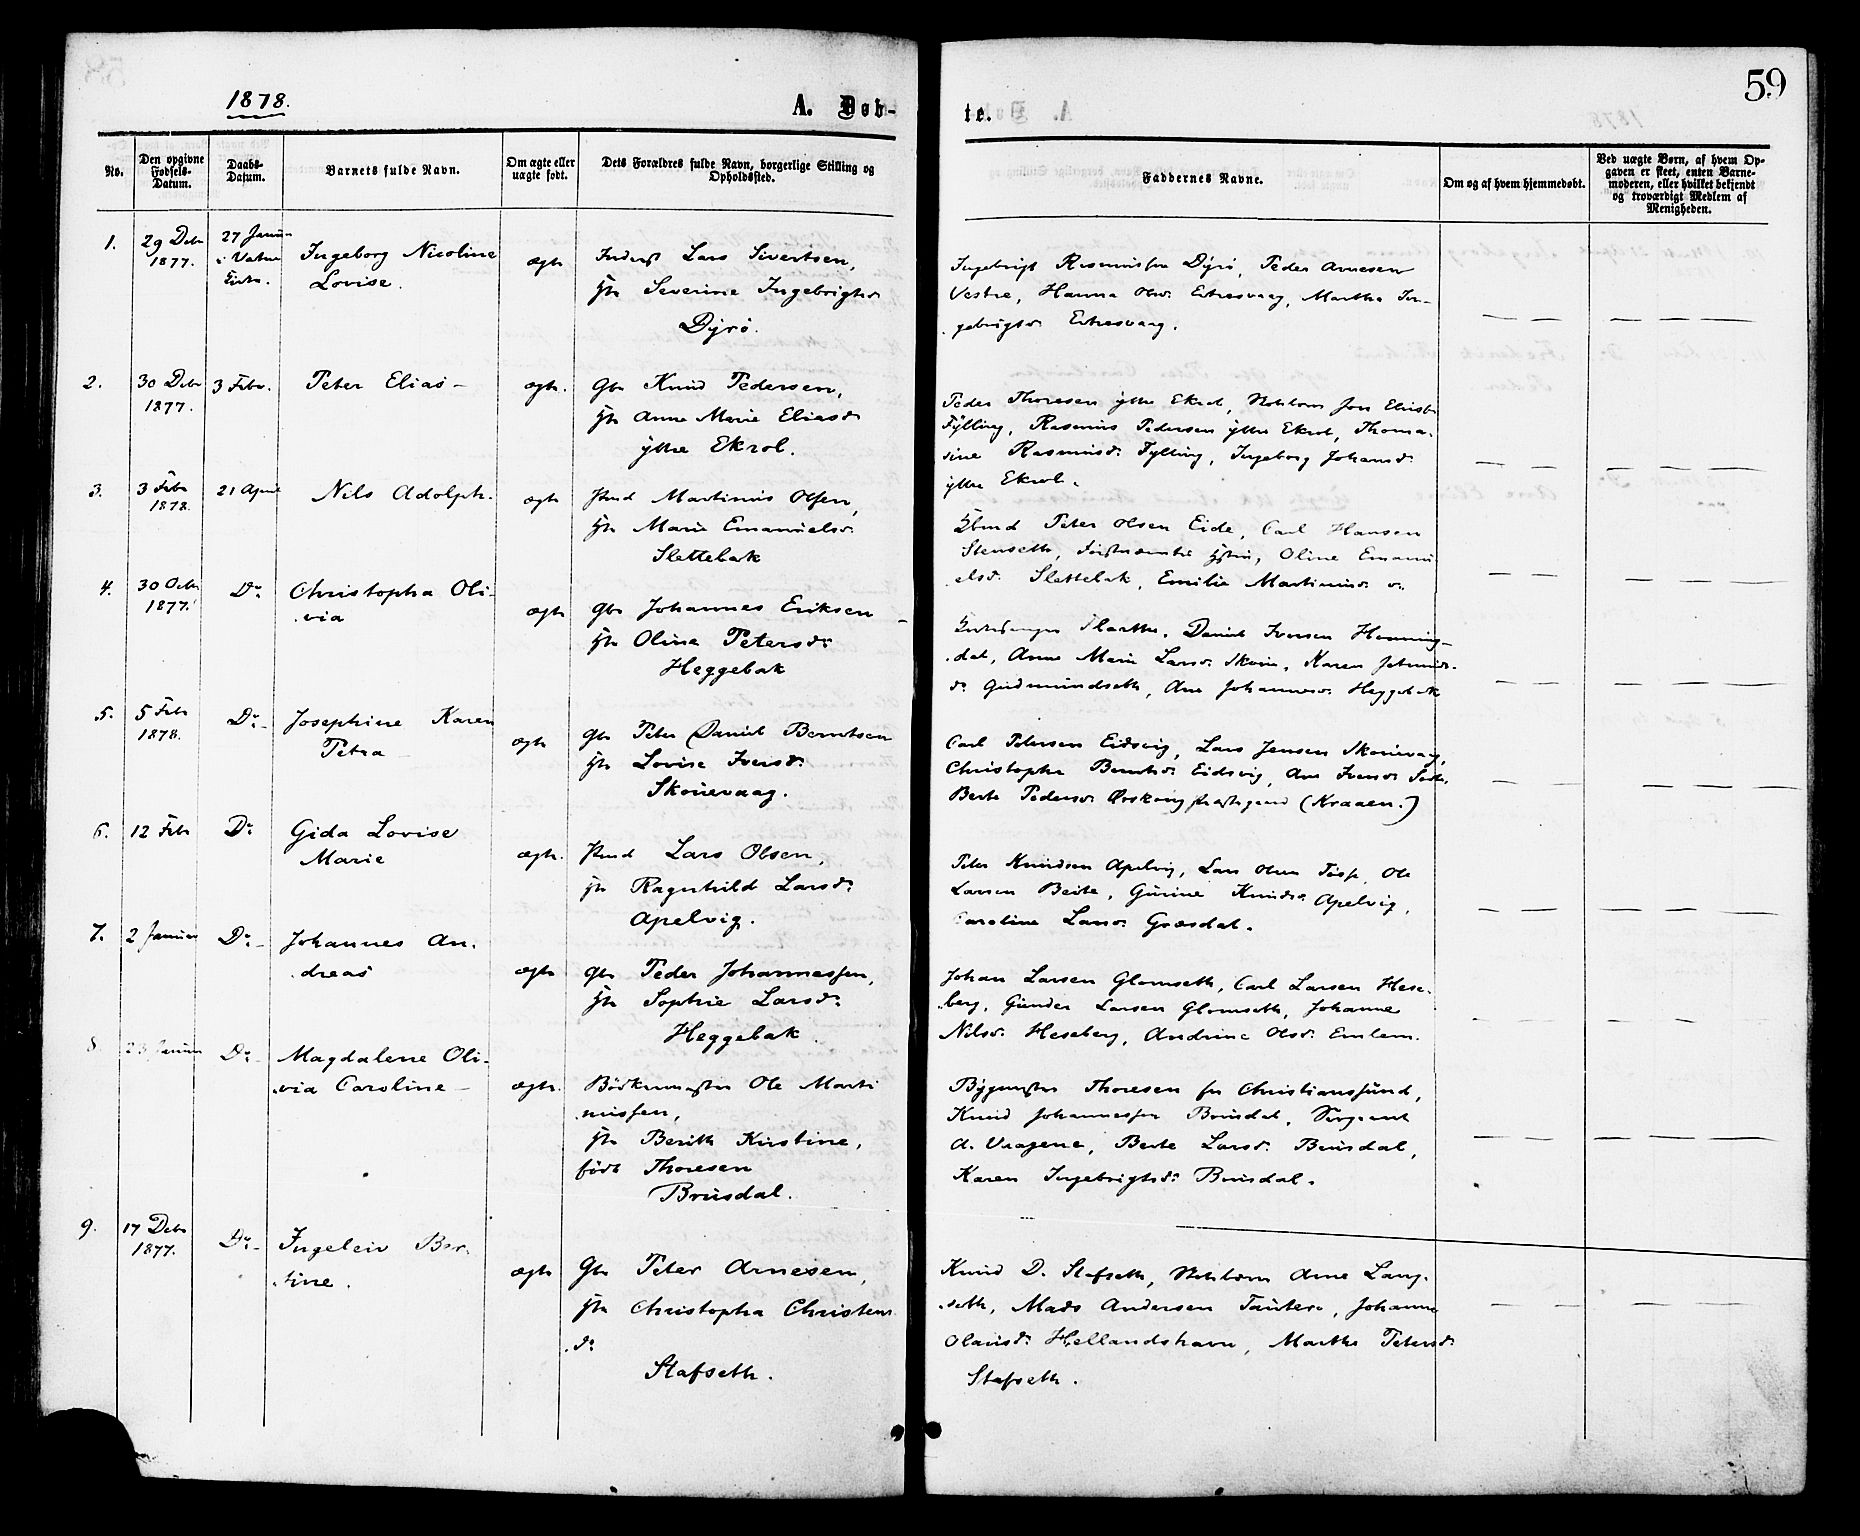 59
1878.
A. Døb-
te.
No.
Den opgivne Fødsels-Datum.
Daabs-Datum.
Barnets fulde Navn.
Om ægte eller uægte født.
Dets Forældres fulde Navn, borgerlige Stilling og Opholdssted.
Faddernes Navne.
Om og af hvem hjemmedøbt.
Ved uægte Børn, af hvem Opgaven er skeet, enten Barnemoderen, eller hvilket bekjendt og troværdigt Medlem af Menigheden.
1.
29 Debr
1877.
27 Januar
i Vatne
Kirke.
Ingeborg Nicoline
Lovise.
ægte
Inderst Lars Sivertsen,
Severine Ingebrigtsd.
Dyrø.
Ingebrigt Rasmussen Dyrø, Peder Arnesen
Vestre, Hanna Olsd. Eidresvaag, Martha In-
gebrigtsd.
2.
30 Debr
1877.
3 Febr.
Peter Elias
ægte.
Gbr Knud Pedersen,
Anne Marie Eliasd
ytre Ekrol.
Peder Thoresen ytre Ekrol,
Fylling, Rasmus Pedersen ytre Ekrol, Thoma-
sine Rasmusd. Fylling, Ingeborg Johansd.
ytre Ekrol.
3.
3 Febr
1878.
21 April
Nils Adolph.
ægte
Martinus Olsen,
Marie Emanuelsd.
Slettebak
Peter Olsen Eide, Carl Hansen
Stenseth, Oline Emanu
elsd. Slettebak, Emilie Martinusd.
4.
30 Octbr
1877.
Do
Christopha Oli-
via
ægte
Gbr Johannes Eriksen
Olina Petersdr
Heggebak
Flaathe, Daniel Iversen Hemning-
dal, Anne Marie Larsd.
Gudmundseth, Ane Johannesd. Heggebak
5.
5 Febr
1878.
Do
Josephine Karen
Petra
ægte
Gbr Peter Daniel Berntsen
Lovise Iversd.
Skouevaag.
Carl Petersen Eidsvig, Lars Jensen Skouevaag,
Christopha Berntsd. Eidsvig, Ane Iversd
Berte Pedersd. Ørskoug (Kraaen.)
6.
12 Febr
Do
Gida Lovise
Marie
ægte.
Lars Olsen,
Ragnhild Larsd.
Apelvig.
Peter Knudsen Apelvig, Lars Olsen
Larsen Beite, Gurine Knudsd. Apelvig,
Caroline Larsd. Græsdal.
7.
2 Januar
Do
Johannes An-
dreas
ægte
Gbr Peder Johannessen,
Sophie Larsd.
Heggebak.
Johan Larsen Glomseth, Carl Larsen Hese-
berg, Gunder Larsen Glomseth, Johanne
Nilsd. Heseberg, Andrine Olsd. Emlem.
8.
23 Januar
Do
Magdalene Oli-
via Caroline
ægte.
Bødkermester Ole Marti
nussen,
Berith Kirstine,
født Thoresen
Brusdal.
Bygmester Thoresen fra Christianssund,
Knud Johannessen Brusdal, Sergeant
A. Vaagene, Berte Larsd. Brusdal,
Karen Ingebrigtsd. Brusdal.
9.
17 Debr
1877.
Do
Ingeleiv Ber-
tine.
ægte
Gbr Peter Arnesen,
Christopha Christens
dr
Stafseth.
Knud D. Stafseth, Arne Lang-
seth, Mads Andersen Tautere, Johanne
Olausd. Hellandshavn, Marthe Petersd.
Stafseth.